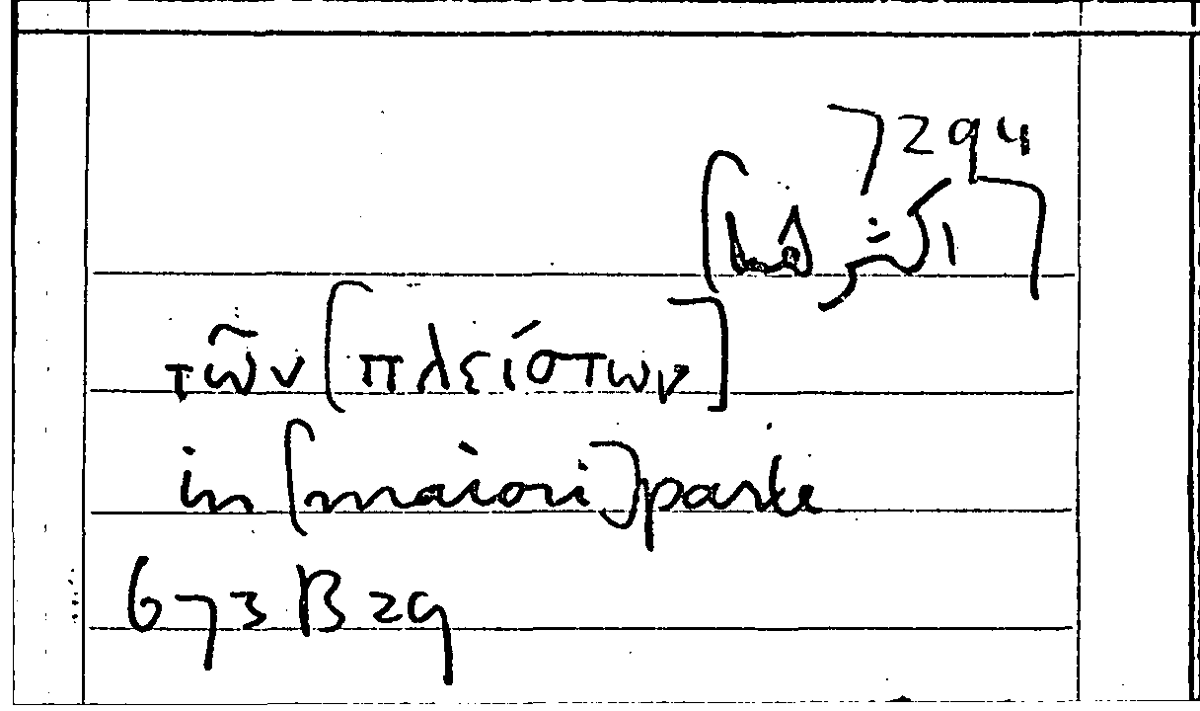 7294
τῶν [πλείστων]
in [maiori] parte
673 B 29